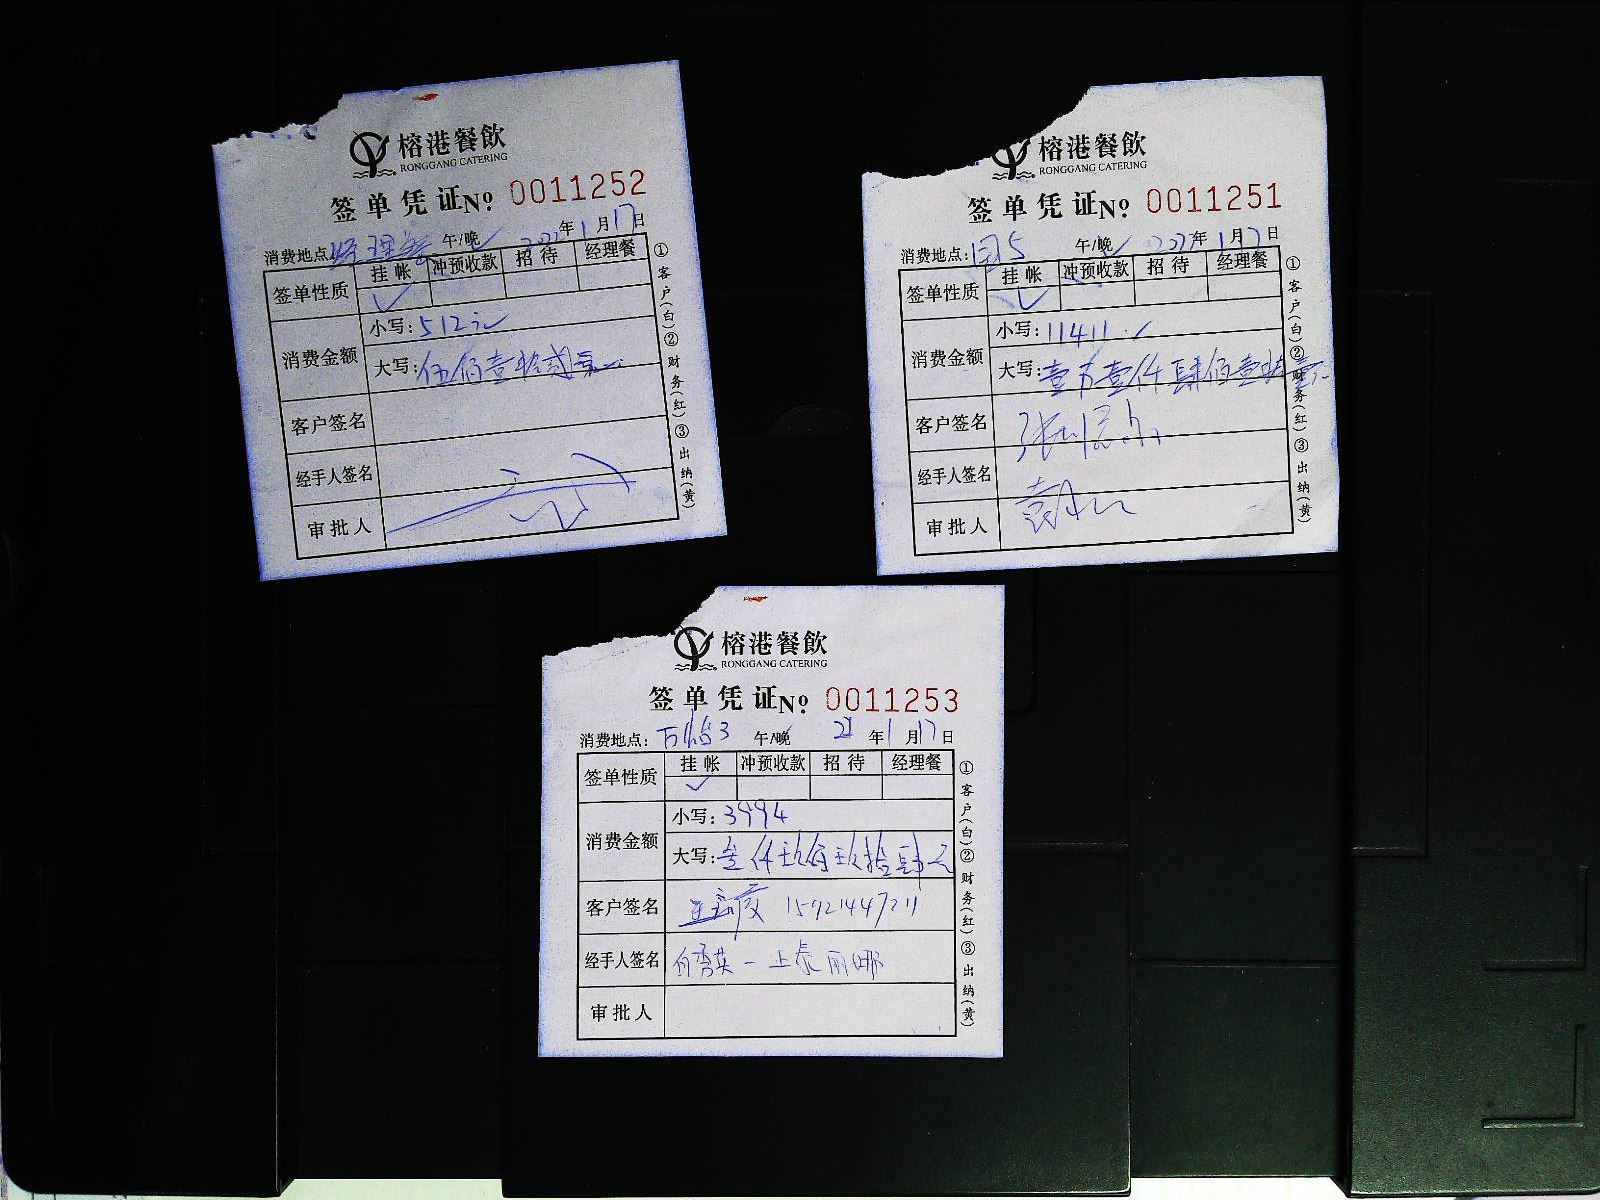 榕港餐飲
RONGGANG CATERING
签单凭证No 0011252
消费地点: 经理餐 午/晚 年1月17日
签单性质 挂帐 冲预收款 招待 经理餐
✓
消费金额 小写: 512元
大写: 伍佰壹拾贰元
客户签名
经手人签名
审批人
①客户(白)②财务(红)③出纳(黄)
榕港餐飲
RONGGANG CATERING
签单凭证No 0011251
消费地点: 国5 午/晚 年1月17日
签单性质 挂帐 冲预收款 招待 经理餐
✓
消费金额 小写: 11411.
大写: 壹万壹仟肆佰壹拾壹元
客户签名
经手人签名
审批人
①客户(白)②财务(红)③出纳(黄)
榕港餐飲
RONGGANG CATERING
签单凭证No 0011253
消费地点: 3 午/晚 21年1月17日
签单性质 挂帐 冲预收款 招待 经理餐
✓
消费金额 小写: 3994
大写: 叁仟玖佰玖拾肆元
客户签名 15921447211
经手人签名 丽娜
审批人
①客户(白)②财务(红)③出纳(黄)